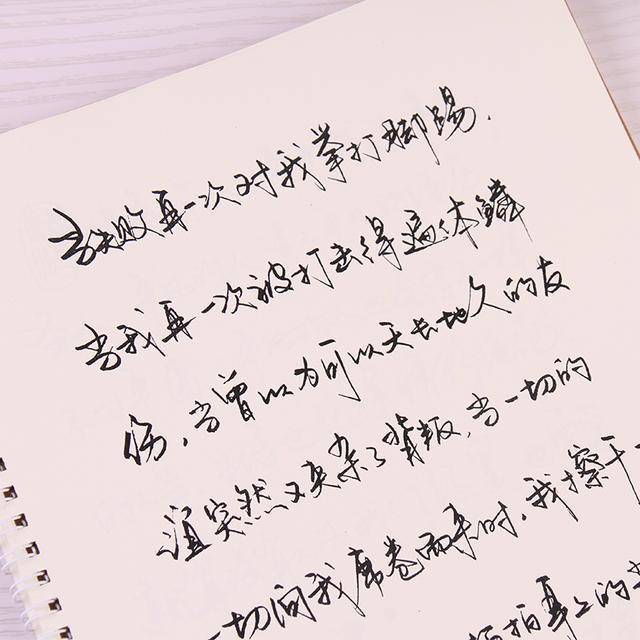 当失败再一次对我拳打脚踢，
当我再一次被打击得遍体鳞
伤，当曾以为可以天长地久的友
谊突然又夹杂了背叛，当一切的
一切向我席卷而来时，我擦干
拍拍身上的